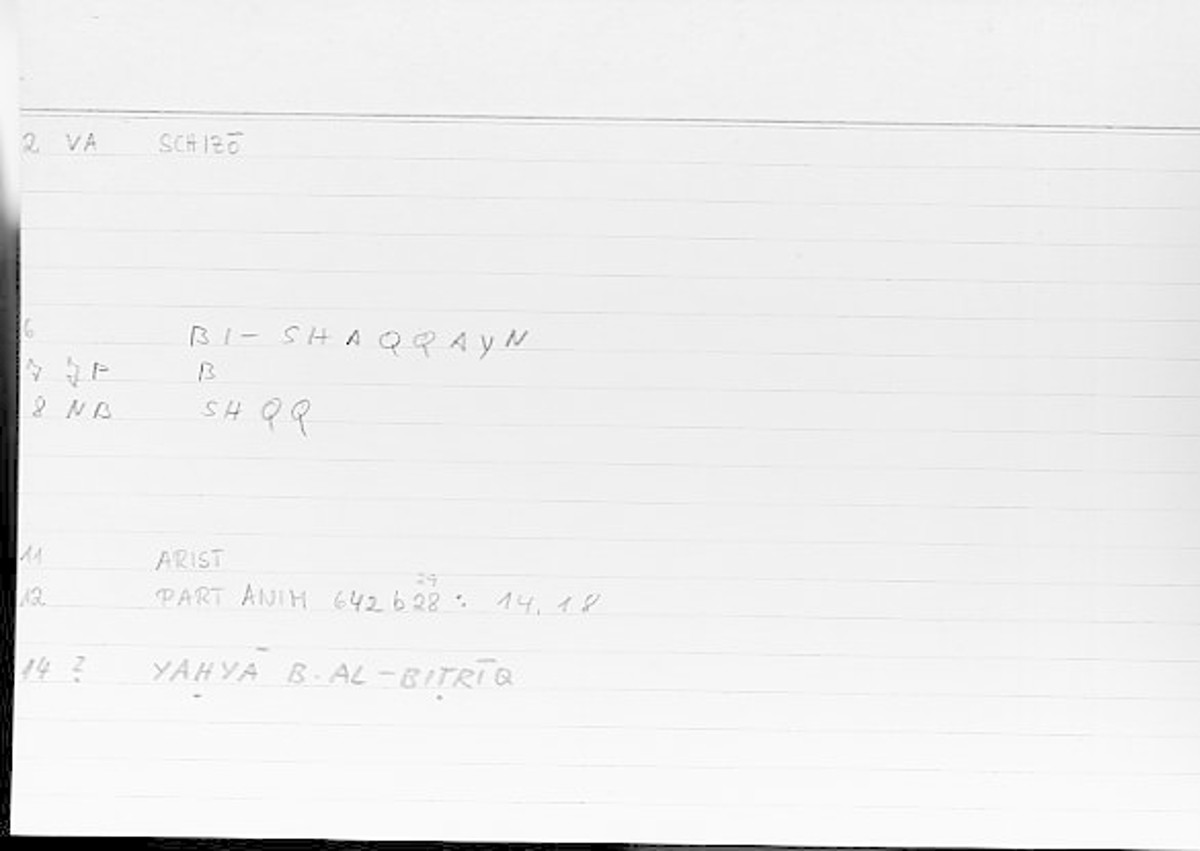 2 VA SCHIZŌ
6 BI-SHAQQAYN
7 JP B
8 NB SHQQ
11 ARIST
29
12 PART ANIM 642b28: 14,18
14 ? YAḤYĀ B. AL-BIṬRĪQ